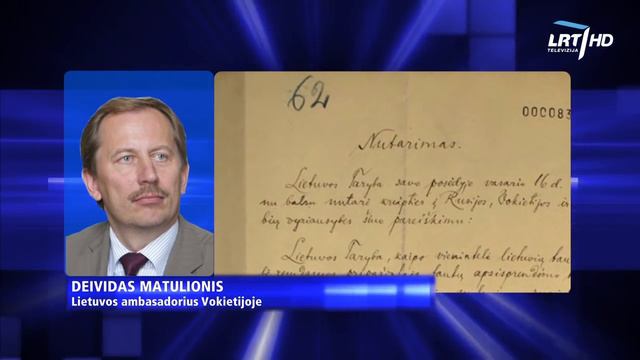 LRT HD
TELEVIZIJA
62
000083
Nutarimas.
Lietuvos Taryba savo posėdyje vasario 16 d.
nu balsu nutarė kreiptis į Rusijos, Vokietijos ir
bių vyriausybes šiuo pareiškimu:
Lietuvos Taryba, kaipo vienintelė lietuvių tau
apsisprendimo
DEIVIDAS MATULIONIS
Lietuvos ambasadorius Vokietijoje